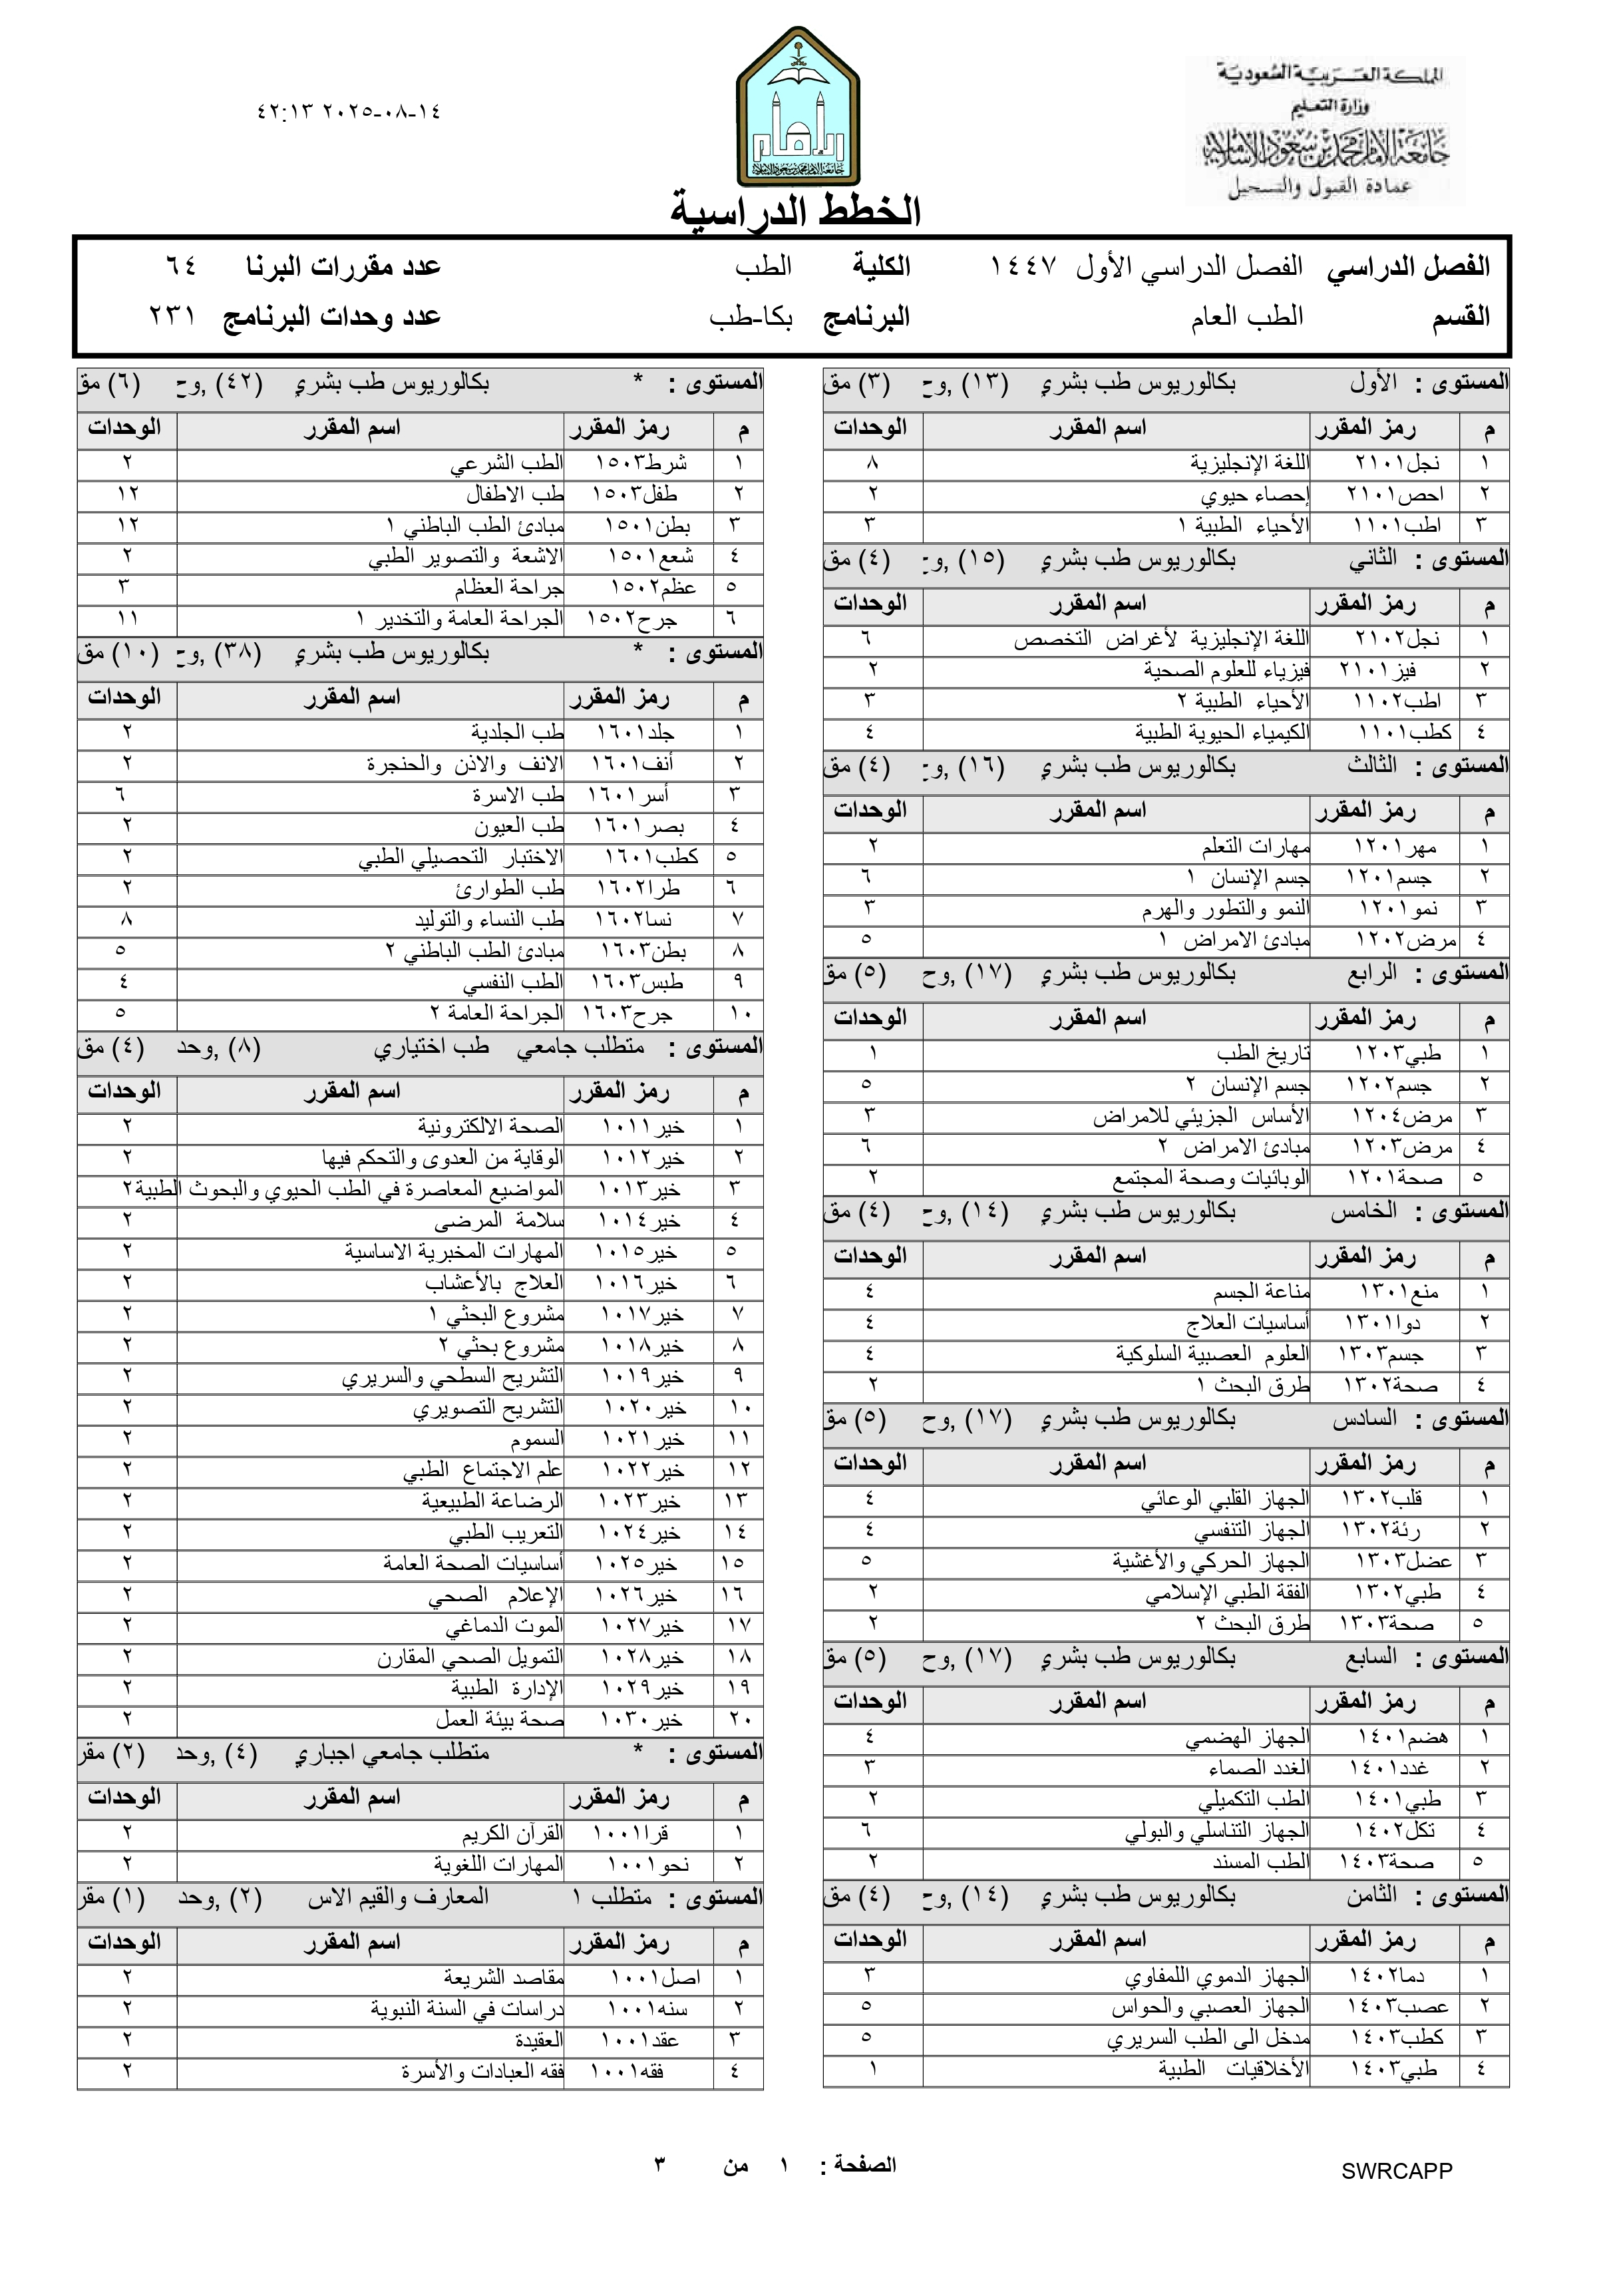 المملكة العربية السعودية
وزارة التعليم
جامعة الإمام محمد بن سعود الإسلامية
عمادة القبول والتسجيل
٤٢:١٣ ٢٠٢٥-٠٨-١٤
الخطط الدراسية
الفصل الدراسي الفصل الدراسي الأول ١٤٤٧ الكلية الطب عدد مقررات البرنا ٦٤
القسم الطب العام البرنامج بكا-طب عدد وحدات البرنامج ٢٣١
المستوى : الأول بكالوريوس طب بشري (١٣) ,وح (٣) مق
م رمز المقرر اسم المقرر الوحدات
١ نجل٢١٠١ اللغة الإنجليزية ٨
٢ احص٢١٠١ إحصاء حيوي ٢
٣ اطب١١٠١ الأحياء الطبية ١ ٣
المستوى : الثاني بكالوريوس طب بشري (١٥) ,وح (٤) مق
م رمز المقرر اسم المقرر الوحدات
١ نجل٢١٠٢ اللغة الإنجليزية لأغراض التخصص ٦
٢ فيز٢١٠١ فيزياء للعلوم الصحية ٢
٣ اطب١١٠٢ الأحياء الطبية ٢ ٣
٤ كطب١١٠١ الكيمياء الحيوية الطبية ٤
المستوى : الثالث بكالوريوس طب بشري (١٦) ,وح (٤) مق
م رمز المقرر اسم المقرر الوحدات
١ مهر١٢٠١ مهارات التعلم ٢
٢ جسم١٢٠١ جسم الإنسان ١ ٦
٣ نمو١٢٠١ النمو والتطور والهرم ٣
٤ مرض١٢٠٢ مبادئ الامراض ١ ٥
المستوى : الرابع بكالوريوس طب بشري (١٧) ,وح (٥) مق
م رمز المقرر اسم المقرر الوحدات
١ طبي١٢٠٣ تاريخ الطب ١
٢ جسم١٢٠٢ جسم الإنسان ٢ ٥
٣ مرض١٢٠٤ الأساس الجزيئي للامراض ٣
٤ مرض١٢٠٣ مبادئ الامراض ٢ ٦
٥ صحة١٢٠١ الوبائيات وصحة المجتمع ٢
المستوى : الخامس بكالوريوس طب بشري (١٤) ,وح (٤) مق
م رمز المقرر اسم المقرر الوحدات
١ منع١٣٠١ مناعة الجسم ٤
٢ دوا١٣٠١ أساسيات العلاج ٤
٣ جسم١٣٠٣ العلوم العصبية السلوكية ٤
٤ صحة١٣٠٢ طرق البحث ١ ٢
المستوى : السادس بكالوريوس طب بشري (١٧) ,وح (٥) مق
م رمز المقرر اسم المقرر الوحدات
١ قلب١٣٠٢ الجهاز القلبي الوعائي ٤
٢ رئة١٣٠٢ الجهاز التنفسي ٤
٣ عضل١٣٠٣ الجهاز الحركي والأغشية ٥
٤ طبي١٣٠٢ الفقة الطبي الإسلامي ٢
٥ صحة١٣٠٣ طرق البحث ٢ ٢
المستوى : السابع بكالوريوس طب بشري (١٧) ,وح (٥) مق
م رمز المقرر اسم المقرر الوحدات
١ هضم١٤٠١ الجهاز الهضمي ٤
٢ غدد١٤٠١ الغدد الصماء ٣
٣ طبي١٤٠١ الطب التكميلي ٢
٤ تكل١٤٠٢ الجهاز التناسلي والبولي ٦
٥ صحة١٤٠٣ الطب المسند ٢
المستوى : الثامن بكالوريوس طب بشري (١٤) ,وح (٤) مق
م رمز المقرر اسم المقرر الوحدات
١ دما١٤٠٢ الجهاز الدموي اللمفاوي ٣
٢ عصب١٤٠٣ الجهاز العصبي والحواس ٥
٣ كطب١٤٠٣ مدخل الى الطب السريري ٥
٤ طبي١٤٠٣ الأخلاقيات الطبية ١
المستوى : * بكالوريوس طب بشري (٤٢) ,وح (٦) مق
م رمز المقرر اسم المقرر الوحدات
١ شرط١٥٠٣ الطب الشرعي ٢
٢ طفل١٥٠٣ طب الاطفال ١٢
٣ بطن١٥٠١ مبادئ الطب الباطني ١ ١٢
٤ شعع١٥٠١ الاشعة والتصوير الطبي ٢
٥ عظم١٥٠٢ جراحة العظام ٣
٦ جرح١٥٠٢ الجراحة العامة والتخدير ١ ١١
المستوى : * بكالوريوس طب بشري (٣٨) ,وح (١٠) مق
م رمز المقرر اسم المقرر الوحدات
١ جلد١٦٠١ طب الجلدية ٢
٢ أنف١٦٠١ الانف والاذن والحنجرة ٢
٣ أسر١٦٠١ طب الاسرة ٦
٤ بصر١٦٠١ طب العيون ٢
٥ كطب١٦٠١ الاختبار التحصيلي الطبي ٢
٦ طرا١٦٠٢ طب الطوارئ ٢
٧ نسا١٦٠٢ طب النساء والتوليد ٨
٨ بطن١٦٠٣ مبادئ الطب الباطني ٢ ٥
٩ طبس١٦٠٣ الطب النفسي ٤
١٠ جرح١٦٠٣ الجراحة العامة ٢ ٥
المستوى : متطلب جامعي طب اختياري (٨) ,وحد (٤) مق
م رمز المقرر اسم المقرر الوحدات
١ خير١٠١١ الصحة الالكترونية ٢
٢ خير١٠١٢ الوقاية من العدوى والتحكم فيها ٢
٣ خير١٠١٣ المواضيع المعاصرة في الطب الحيوي والبحوث الطبية ٢
٤ خير١٠١٤ سلامة المرضى ٢
٥ خير١٠١٥ المهارات المخبرية الاساسية ٢
٦ خير١٠١٦ العلاج بالأعشاب ٢
٧ خير١٠١٧ مشروع البحثي ١ ٢
٨ خير١٠١٨ مشروع بحثي ٢ ٢
٩ خير١٠١٩ التشريح السطحي والسريري ٢
١٠ خير١٠٢٠ التشريح التصويري ٢
١١ خير١٠٢١ السموم ٢
١٢ خير١٠٢٢ علم الاجتماع الطبي ٢
١٣ خير١٠٢٣ الرضاعة الطبيعية ٢
١٤ خير١٠٢٤ التعريب الطبي ٢
١٥ خير١٠٢٥ أساسيات الصحة العامة ٢
١٦ خير١٠٢٦ الإعلام الصحي ٢
١٧ خير١٠٢٧ الموت الدماغي ٢
١٨ خير١٠٢٨ التمويل الصحي المقارن ٢
١٩ خير١٠٢٩ الإدارة الطبية ٢
٢٠ خير١٠٣٠ صحة بيئة العمل ٢
المستوى : * متطلب جامعي اجباري (٤) ,وحد (٢) مقر
م رمز المقرر اسم المقرر الوحدات
١ قرا١٠٠١ القرآن الكريم ٢
٢ نحو١٠٠١ المهارات اللغوية ٢
المستوى : متطلب ١ المعارف والقيم الاس (٢) ,وحد (١) مقر
م رمز المقرر اسم المقرر الوحدات
١ اصل١٠٠١ مقاصد الشريعة ٢
٢ سنه١٠٠١ دراسات في السنة النبوية ٢
٣ عقد١٠٠١ العقيدة ٢
٤ فقه١٠٠١ فقه العبادات والأسرة ٢
الصفحة : ١ من ٣
SWRCAPP